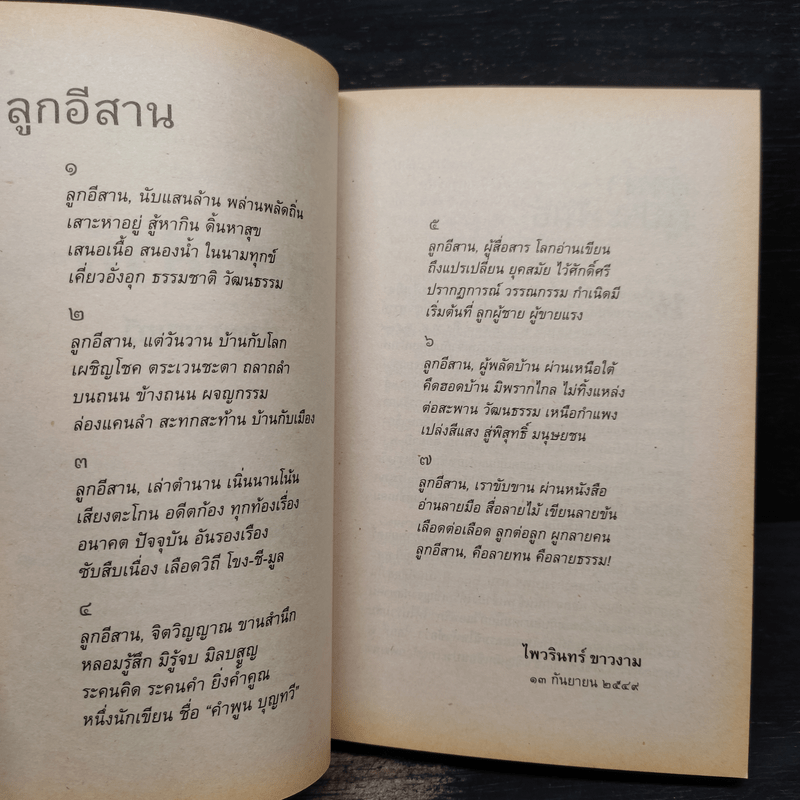 ลูกอีสาน
๑
ลูกอีสาน, นับแสนล้าน พล่านพลัดถิ่น
เสาะหาอยู่ สู้หากิน ดิ้นหาสุข
เสนอเนื้อ สนองน้ำ ในนามทุกข์
เคี่ยวอั่งอุก ธรรมชาติ วัฒนธรรม
๒
ลูกอีสาน, แต่วันวาน บ้านกับโลก
เผชิญโชค ตระเวนชะตา ถลาถลำ
บนถนน ข้างถนน ผจญกรรม
ล่องแคนลำ สะทกสะท้าน บ้านกับเมือง
๓
ลูกอีสาน, เล่าตำนาน เนิ่นนานโน้น
เสียงตะโกน อดีตก้อง ทุกท้องเรื่อง
อนาคต ปัจจุบัน อันรองเรือง
ซับสืบเนื่อง เลือดวิถี โขง-ชี-มูล
๔
ลูกอีสาน, จิตวิญญาณ ขานสำนึก
หลอมรู้สึก มิรู้จบ มิลบสูญ
ระคนคิด ระคนคำ ยิ่งค้ำคูณ
หนึ่งนักเขียน ชื่อ “คำพูน บุญทวี”
๕
ลูกอีสาน, ผู้สื่อสาร โลกอ่านเขียน
ถึงแปรเปลี่ยน ยุคสมัย ไว้ศักดิ์ศรี
ปรากฏการณ์ วรรณกรรม กำเนิดมี
เริ่มต้นที่ ลูกผู้ชาย ผู้ขายแรง
๖
ลูกอีสาน, ผู้พลัดบ้าน ผ่านเหนือใต้
คึดฮอดบ้าน มิพรากไกล ไม่ทิ้งแหล่ง
ต่อสะพาน วัฒนธรรม เหนือกำแพง
เปล่งสีแสง สู่พิสุทธิ์ มนุษยชน
๗
ลูกอีสาน, เราขับขาน ผ่านหนังสือ
อ่านลายมือ สื่อลายไม้ เขียนลายข้น
เลือดต่อเลือด ลูกต่อลูก ผูกลายคน
ลูกอีสาน, คือลายทน คือลายธรรม!
ไพวรินทร์ ขาวงาม
๑๓ กันยายน ๒๕๔๙